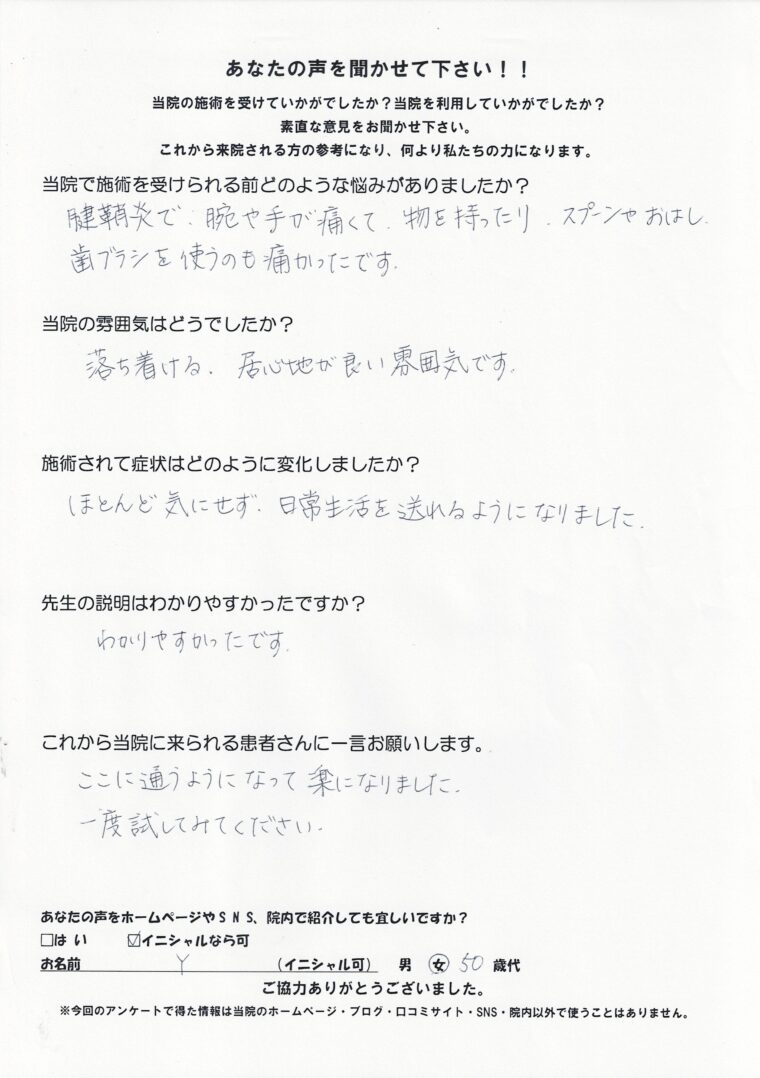 あなたの声を聞かせて下さい！！
当院の施術を受けていかがでしたか？当院を利用していかがでしたか？
素直な意見をお聞かせ下さい。
これから来院される方の参考になり、何より私たちの力になります。
当院で施術を受けられる前どのような悩みがありましたか？
腱鞘炎で、腕や手が痛くて、物を持ったり、スプーンやおはし、
歯ブラシを使うのも痛かったです。
当院の雰囲気はどうでしたか？
落ち着ける、居心地が良い雰囲気です。
施術されて症状はどのように変化しましたか？
ほとんど気にせず、日常生活を送れるようになりました。
先生の説明はわかりやすかったですか？
わかりやすかったです。
これから当院に来られる患者さんに一言お願いします。
ここに通うようになって楽になりました。
一度試してみてください。
あなたの声をホームページやSNS、院内で紹介しても宜しいですか？
□はい ☑イニシャルなら可
お名前 Y （イニシャル可） 男 女 50 歳代
ご協力ありがとうございました。
※今回のアンケートで得た情報は当院のホームページ・ブログ・口コミサイト・SNS・院内以外で使うことはありません。